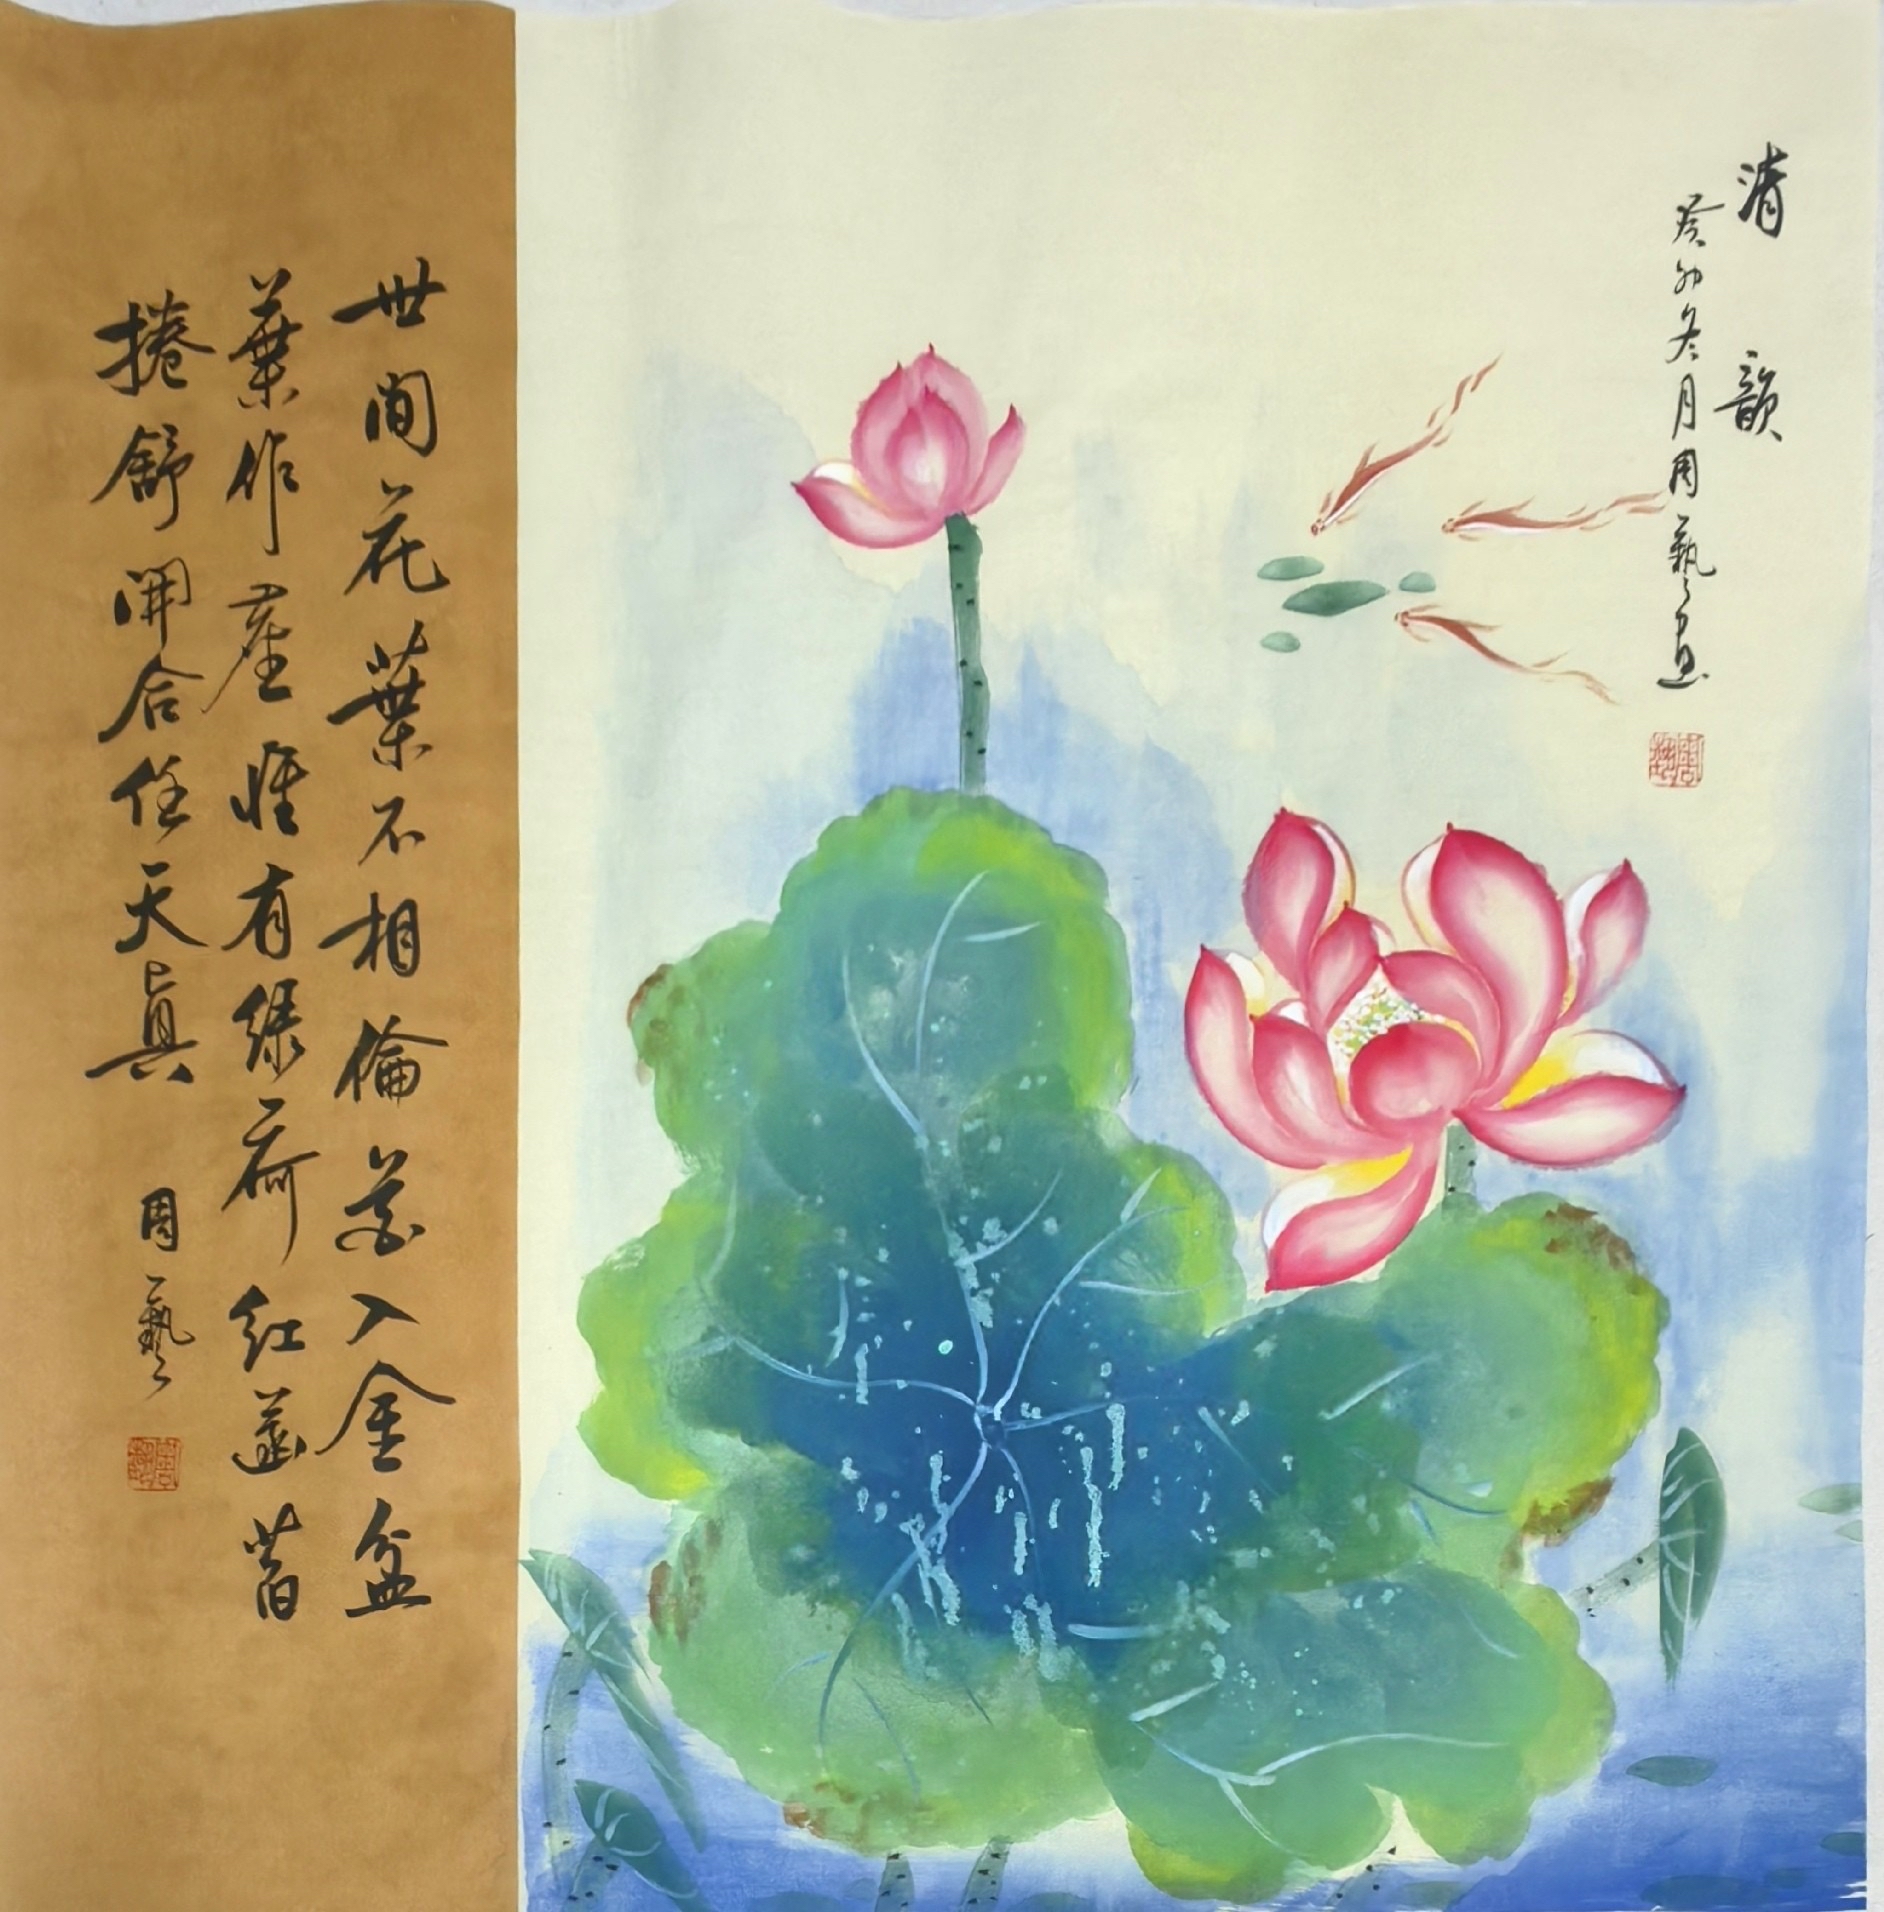 清韻
癸卯冬月周藝画
世間花葉不相倫花入金盆
葉作塵惟有綠荷紅菡萏
捲舒開合任天真 周藝